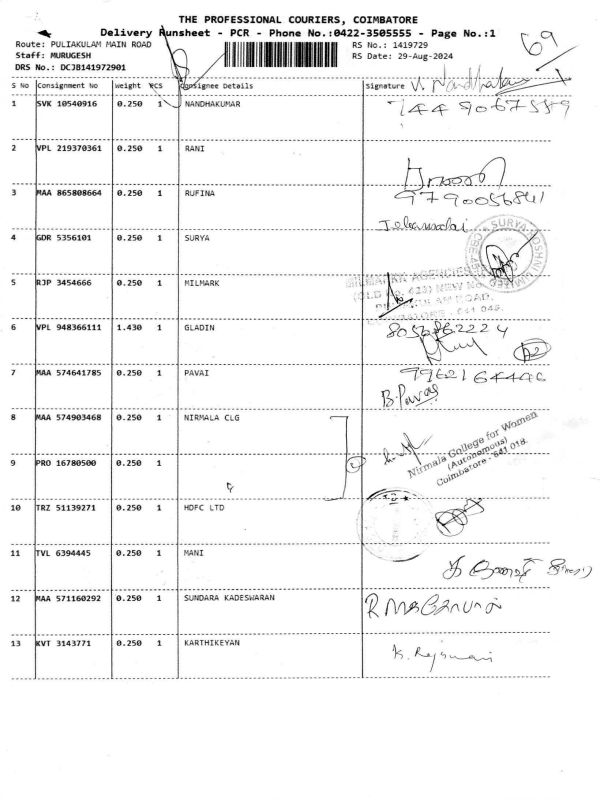 THE PROFESSIONAL COURIERS, COIMBATORE
Delivery Runsheet - PCR - Phone No.:0422-3505555 - Page No.:1
Route: PULIAKULAM MAIN ROAD RS No.: 1419729
Staff: MURUGESH RS Date: 29-Aug-2024
DRS No.: DCJB141972901
69
S No Consignment No Weight PCS Consignee Details Signature
1 SVK 10540916 0.250 1 NANDHAKUMAR
2 VPL 219370361 0.250 1 RANI
3 MAA 865808664 0.250 1 RUFINA
9790056841
4 GDR 5356101 0.250 1 SURYA
5 RJP 3454666 0.250 1 MILMARK
MILMARK AGENCIES
6 VPL 948366111 1.430 1 GLADIN
7 MAA 574641785 0.250 1 PAVAI
9962164446
B. Pavai
8 MAA 574903468 0.250 1 NIRMALA CLG
Nirmala College for Women
(Autonomous)
Coimbatore - 641 018.
9 PRO 16780500 0.250 1
10 TRZ 51139271 0.250 1 HDFC LTD
11 TVL 6394445 0.250 1 MANI
12 MAA 571160292 0.250 1 SUNDARA KADESWARAN
13 KVT 3143771 0.250 1 KARTHIKEYAN